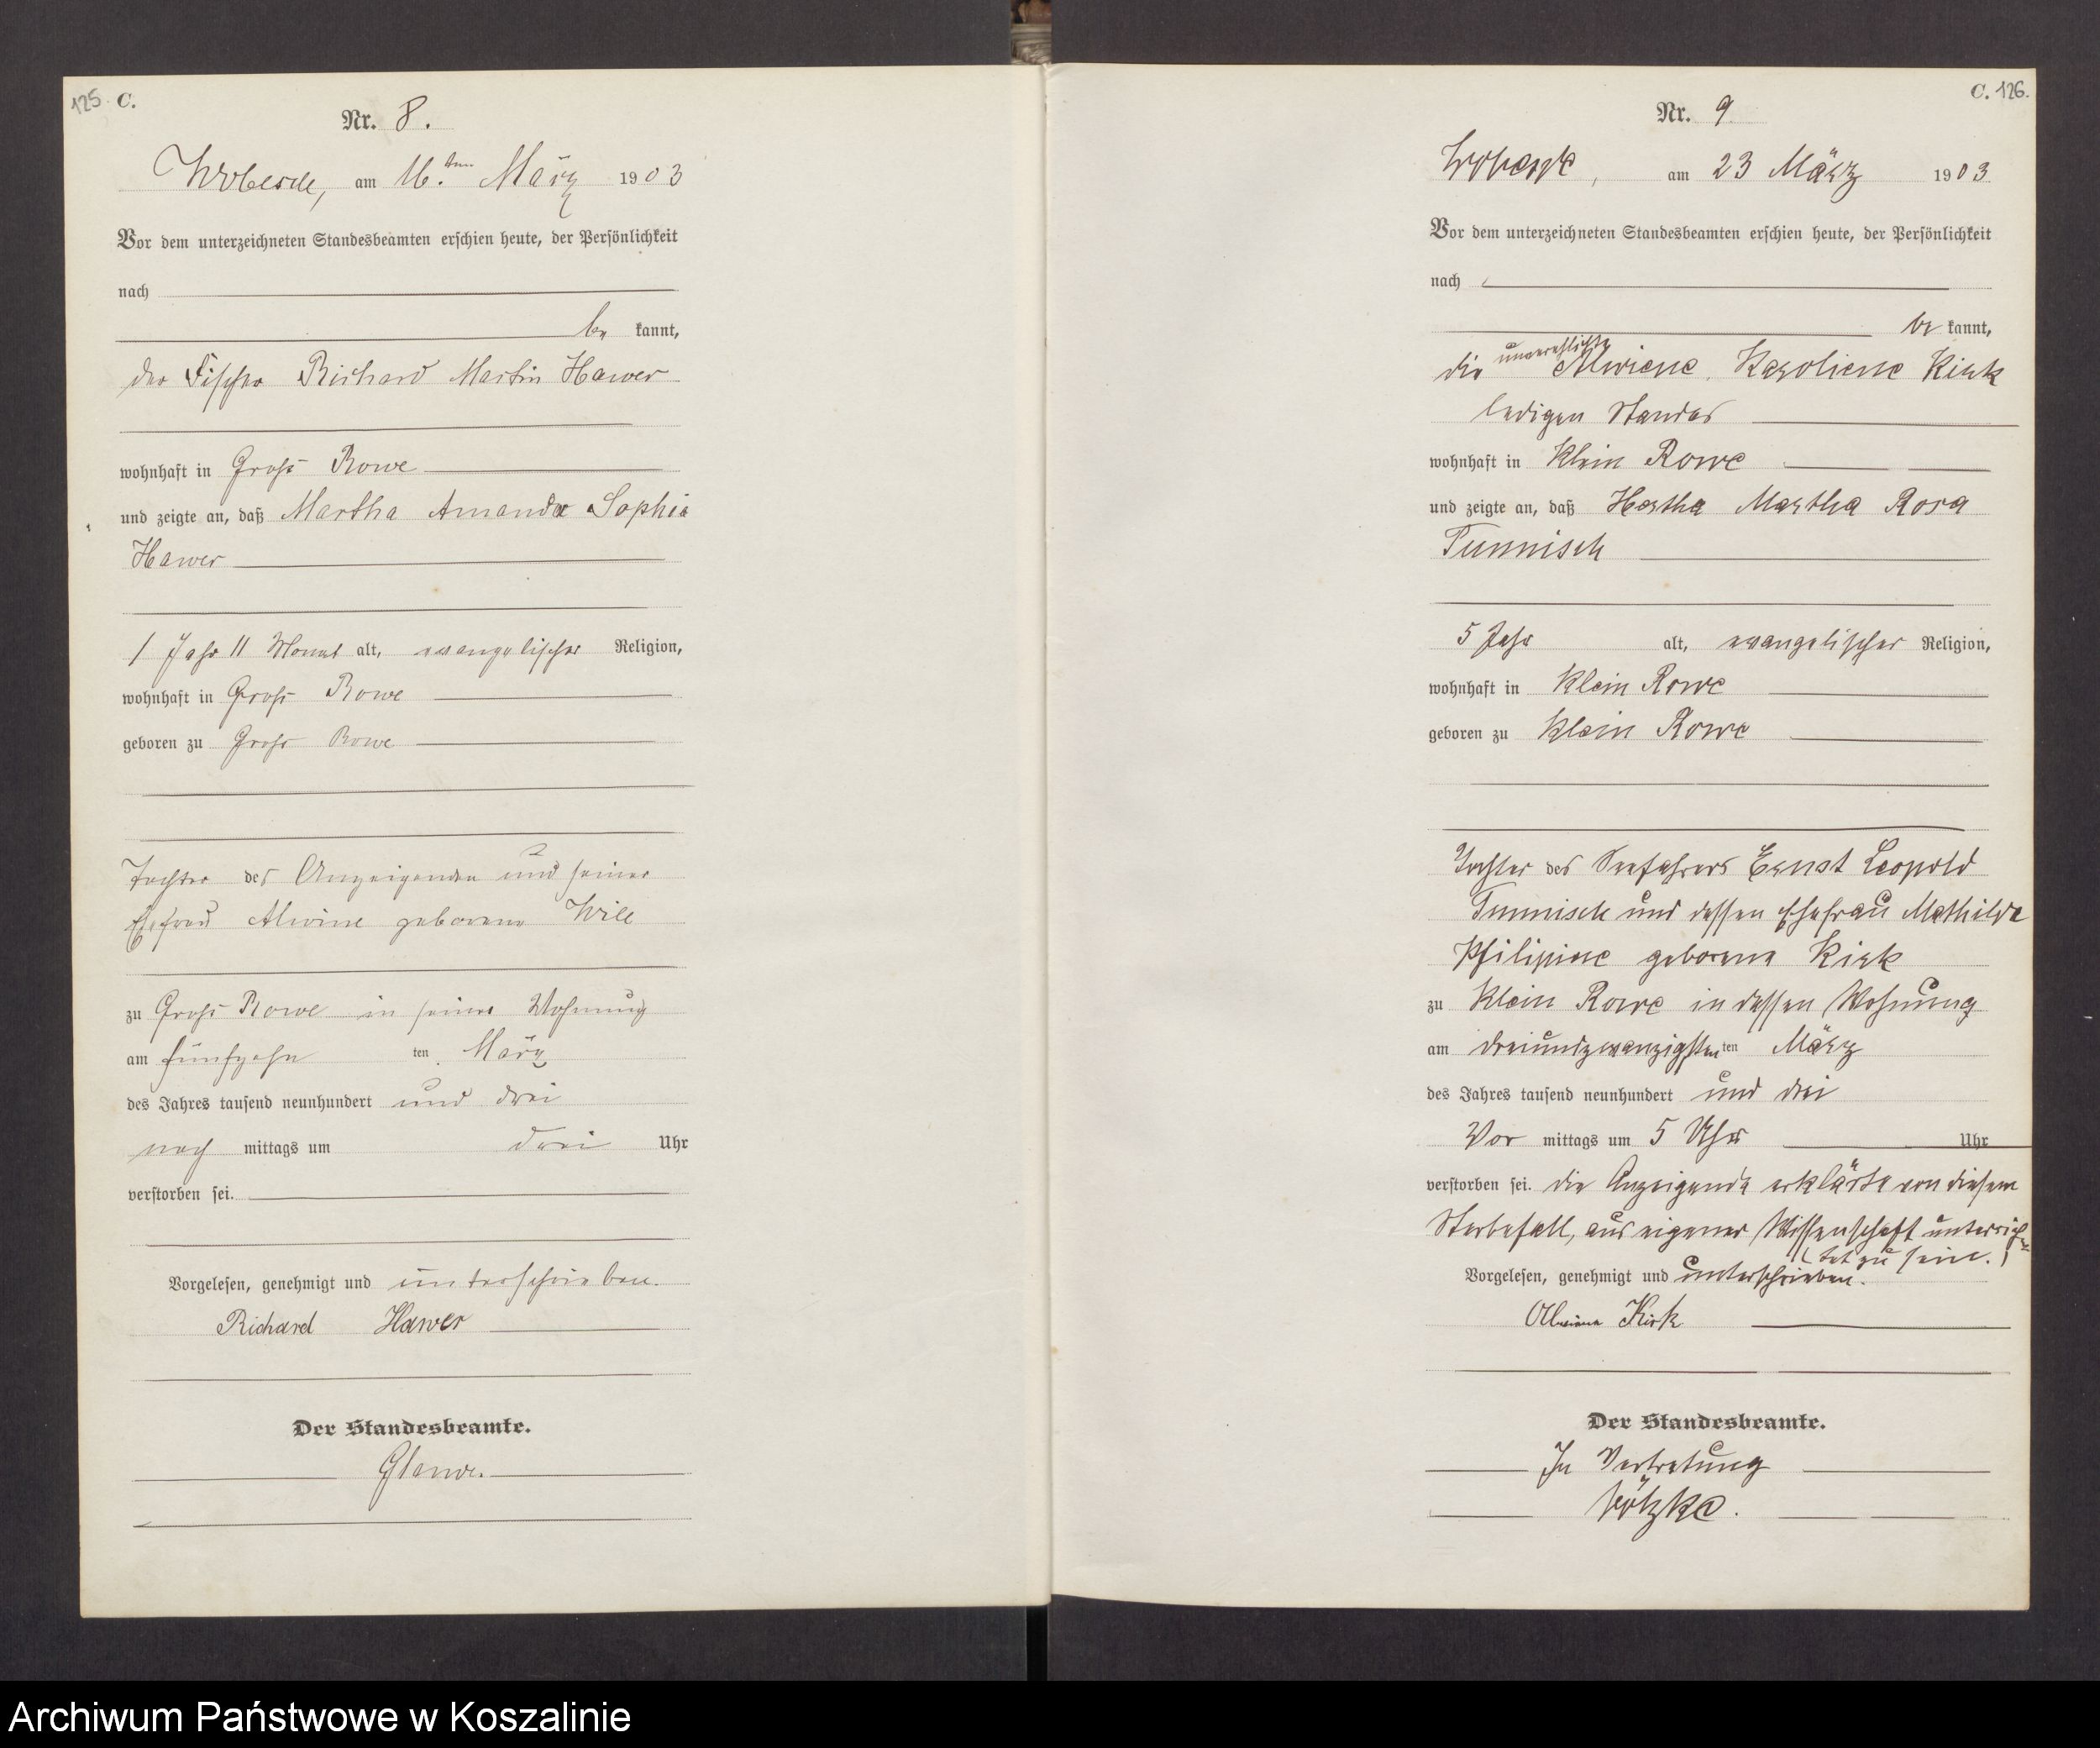 125 C.
Nr. 8.
Wobesde, am 16.ten März 1903
Vor dem unterzeichneten Standesbeamten erschien heute, der Persönlichkeit
nach
be kannt,
der Fischer Richard Martin Hawer
wohnhaft in Groß Rowe
und zeigte an, daß Martha Amanda Sophia
Hawer
1 Jahr 11 Monat alt, evangelischer Religion,
wohnhaft in Groß Rowe
geboren zu Groß Rowe
Tochter des Anzeigenden und seiner
Ehefrau Alwine geborene Will
zu Groß Rowe in seiner Wohnung
am fünfzehn ten März
des Jahres tausend neunhundert und drei
nach mittags um drei Uhr
verstorben sei.
Vorgelesen, genehmigt und unterschrieben.
Richard Hawer
Der Standesbeamte.
C. 126.
Nr. 9
am 23 März 1903
Vor dem unterzeichneten Standesbeamten erschien heute, der Persönlichkeit
nach
be kannt,
die unverehlichte Alwiene Karoliene Kirk
ledigen Standes
wohnhaft in Klein Rowe
und zeigte an, daß Hertha Martha Rosa
Tunnisch
5 Jahr alt, evangelischer Religion,
wohnhaft in Klein Rowe
geboren zu Klein Rowe
Tochter des Seefahrers Ernst Leopold
Tunnisch und dessen Ehefrau Mathilde
Philipine geborene Kirk
zu Klein Rowe in dessen Wohnung
am dreiundzwanzigsten ten März
des Jahres tausend neunhundert und drei
Vor mittags um 5 Uhr Uhr
verstorben sei. die Anzeigende erklärte von diesem
Sterbefall, aus eigener Wissenschaft unterrich
tet zu sein.
Vorgelesen, genehmigt und unterschrieben.
Alwiene Kirk
Der Standesbeamte.
In Vertretung
Archiwum Państwowe w Koszalinie